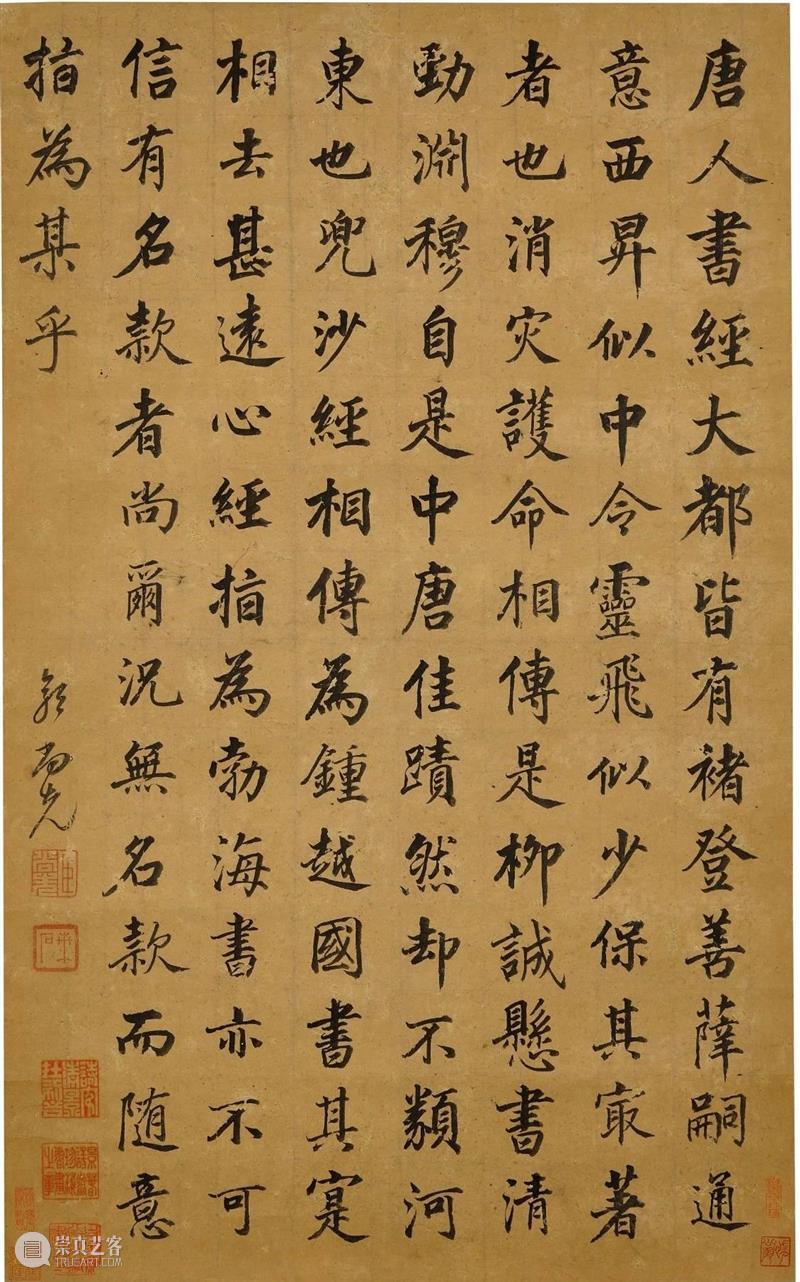 唐人書經大都皆有褚登善薛嗣通
意西昇似中令靈飛似少保其㝡著
者也消灾護命相傳是柳誠懸書清
勁淵穆自是中唐佳蹟然却不類河
東也兜沙經相傳為鍾越國書其寔
相去甚遠心經指為勃海書亦不可
信有名款者尚爾況無名款而随意
指為某乎
郭尚先
崇真艺客
TRUEART.COM